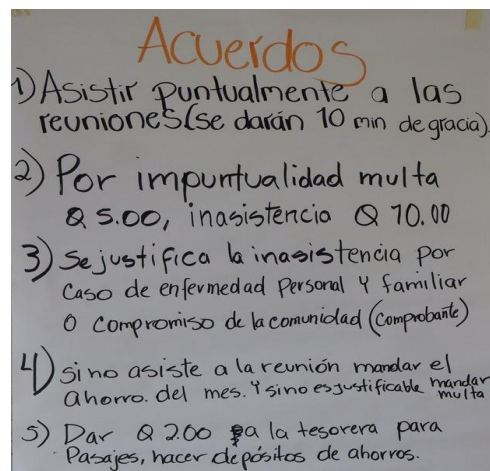 Acuerdos
1) Asistir puntualmente a las
reuniones (se darán 10 min de gracia).
2) Por impuntualidad multa
Q 5.00, inasistencia Q 10.00
3) Se justifica la inasistencia por
caso de enfermedad personal y familiar
o compromiso de la comunidad (comprobante)
4) si no asiste a la reunión mandar el
ahorro. del mes. y si no es justificable mandar
multa
5) Dar Q 2.00 a la tesorera para
Pasajes, hacer depósitos de ahorros.